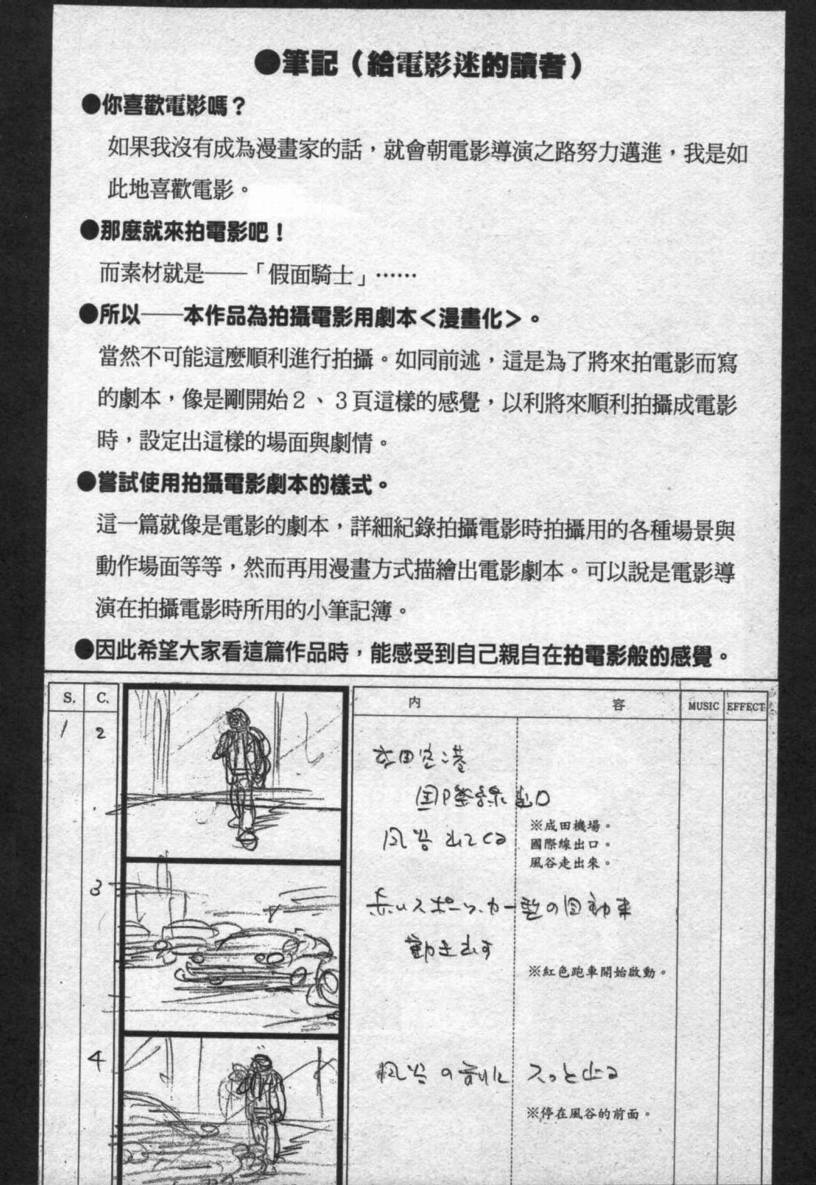 ●筆記（給電影迷的讀者）
●你喜歡電影嗎？
如果我沒有成為漫畫家的話，就會朝電影導演之路努力邁進，我是如
此地喜歡電影。
●那麼就來拍電影吧！
而素材就是──「假面騎士」……
●所以──本作品為拍攝電影用劇本＜漫畫化＞。
當然不可能這麼順利進行拍攝。如同前述，這是為了將來拍電影而寫
的劇本，像是剛開始２、３頁這樣的感覺，以利將來順利拍攝成電影
時，設定出這樣的場面與劇情。
●嘗試使用拍攝電影劇本的樣式。
這一篇就像是電影的劇本，詳細紀錄拍攝電影時拍攝用的各種場景與
動作場面等等，然而再用漫畫方式描繪出電影劇本。可以說是電影導
演在拍攝電影時所用的小筆記簿。
●因此希望大家看這篇作品時，能感受到自己親自在拍電影般的感覺。
S. C. 內容 MUSIC EFFECT
1 2
成田空港
国際線出口
風谷出てくる
※成田機場。
國際線出口。
風谷走出來。
3
赤いスポーツ・カー型の自動車
動き出す
※紅色跑車開始啟動。
4
風谷の前に スッと止る
※停在風谷的前面。